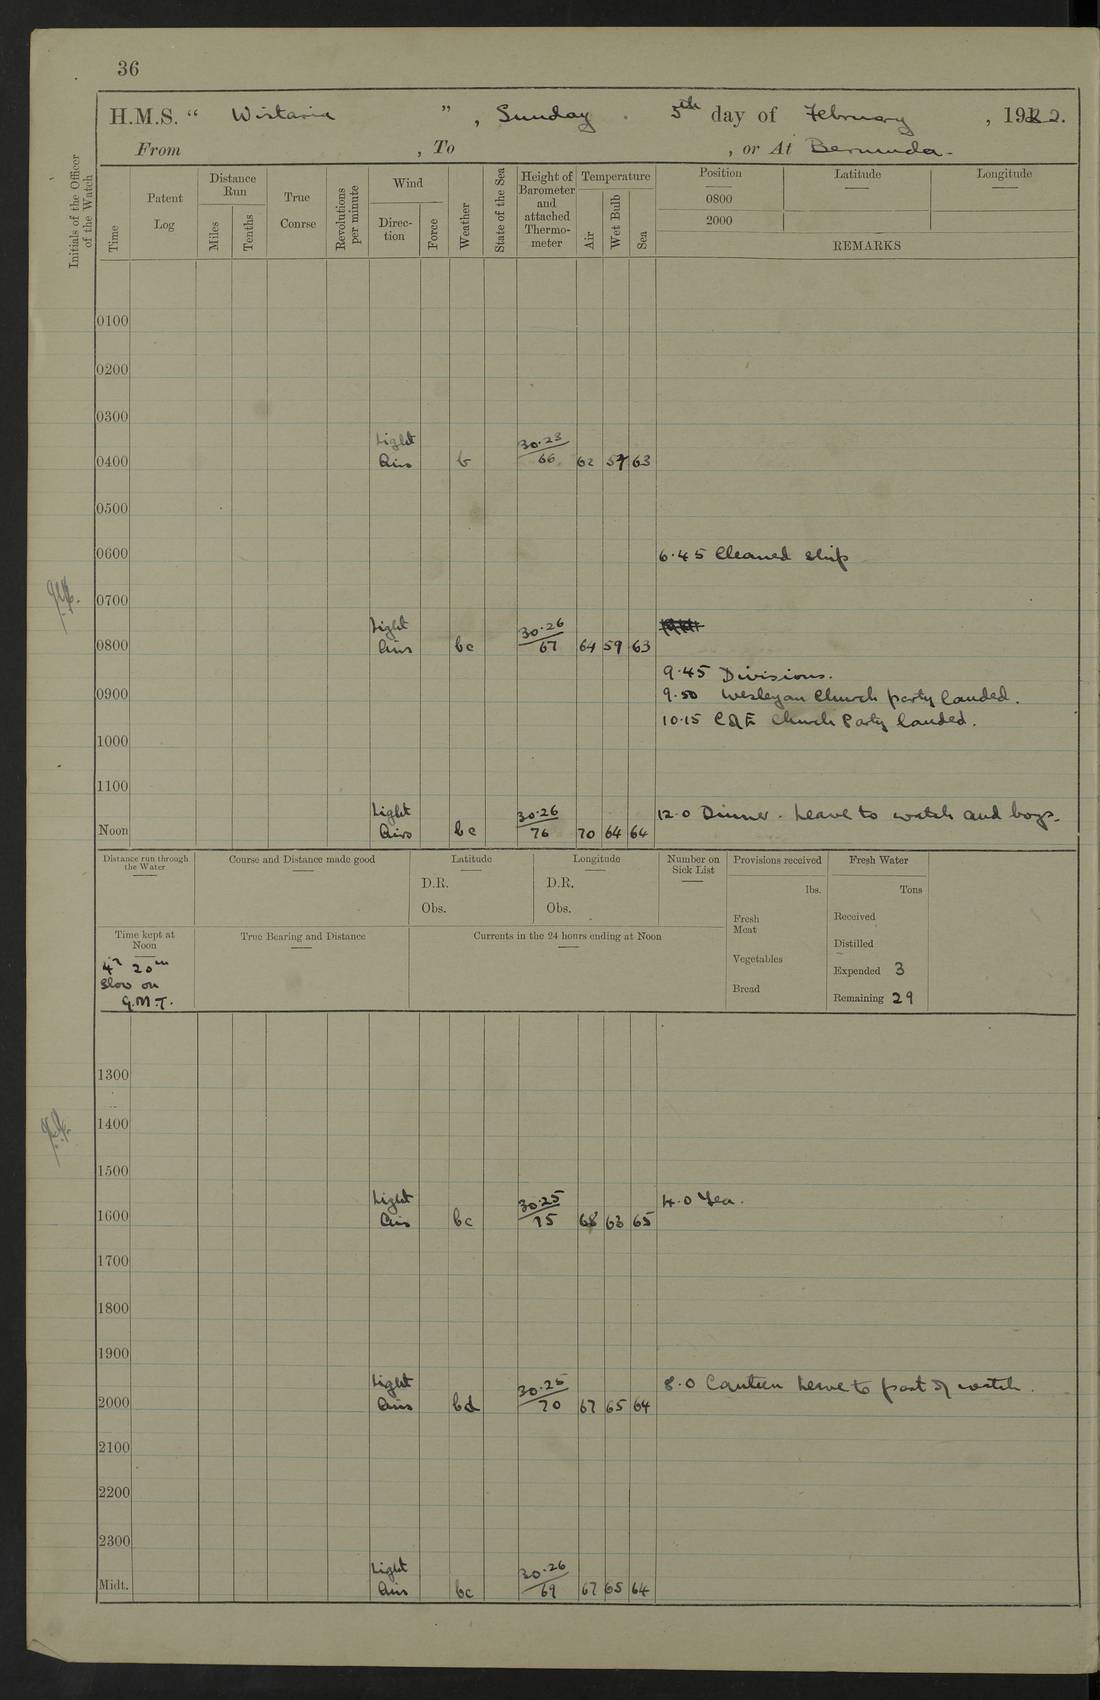 36
H.M.S. “ Wistaria ”, Sunday. 5th day of February, 1922.
From , To , or At Bermuda.
Initials of the Officer of the Watch
Time
Patent Log
Distance Run
Miles
Tenths
True Conrse
Revolutions per minute
Wind
Direc-tion
Force
Weather
State of the Sea
Height of Barometer and attached Thermo-meter
Temperature
Air
Wet Bulb
Sea
Position Latitude Longitude
0800
2000
REMARKS
0100
0200
0300
Light 30.23
0400 Airs b 66 62 57 63
0500
0600 6.45 Cleaned ship
0700
Light 30.26
0800 Airs bc 67 64 59 63
9.45 Divisions.
0900 9.50 Wesleyan Church party landed.
10.15 C of E Church Party landed.
1000
1100
Light 30.26 12.0 Dinner. Leave to watch and boys.
Noon Airs bc 76 70 64 64
Distance run through the Water
Course and Distance made good
Latitude
D.R.
Obs.
Longitude
D.R.
Obs.
Number on Sick List
Provisions received
lbs.
Fresh Meat
Vegetables
Bread
Fresh Water
Tons
Received
Distilled
Expended 3
Remaining 29
Time kept at Noon
4h 20m
Slow on
G.M.T.
True Bearing and Distance
Currents in the 24 hours ending at Noon
1300
1400
1500
Light 30.25 4.0 Tea.
1600 Airs bc 75 68 63 65
1700
1800
1900
Light 30.25 8.0 Canteen leave to part of watch.
2000 Airs bd 70 67 65 64
2100
2200
2300
Light 30.26
Midt. Airs bc 69 67 65 64